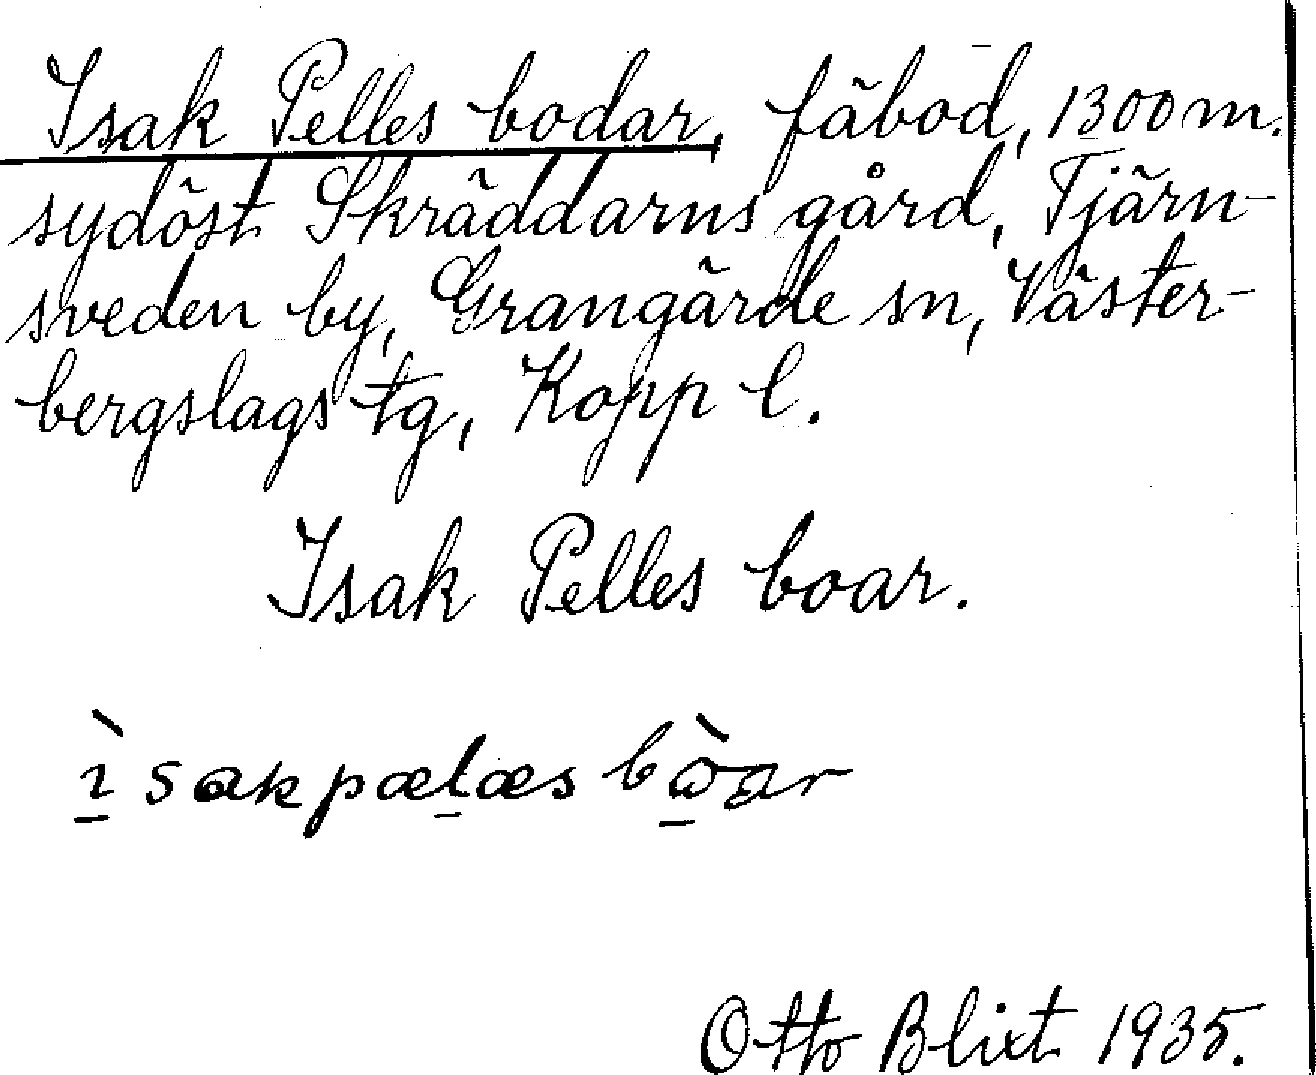 Isak Pelles bodar, fäbod, 1300 m.
sydöst Skräddarns gård, Tjärn-
sveden by, Grangärde sn, Väster-
bergslags tg, Kopp l.
Isak Pelles boar.
ı̱̀sakpæḻæs bὼ̱ar
Otto Blixt 1935.